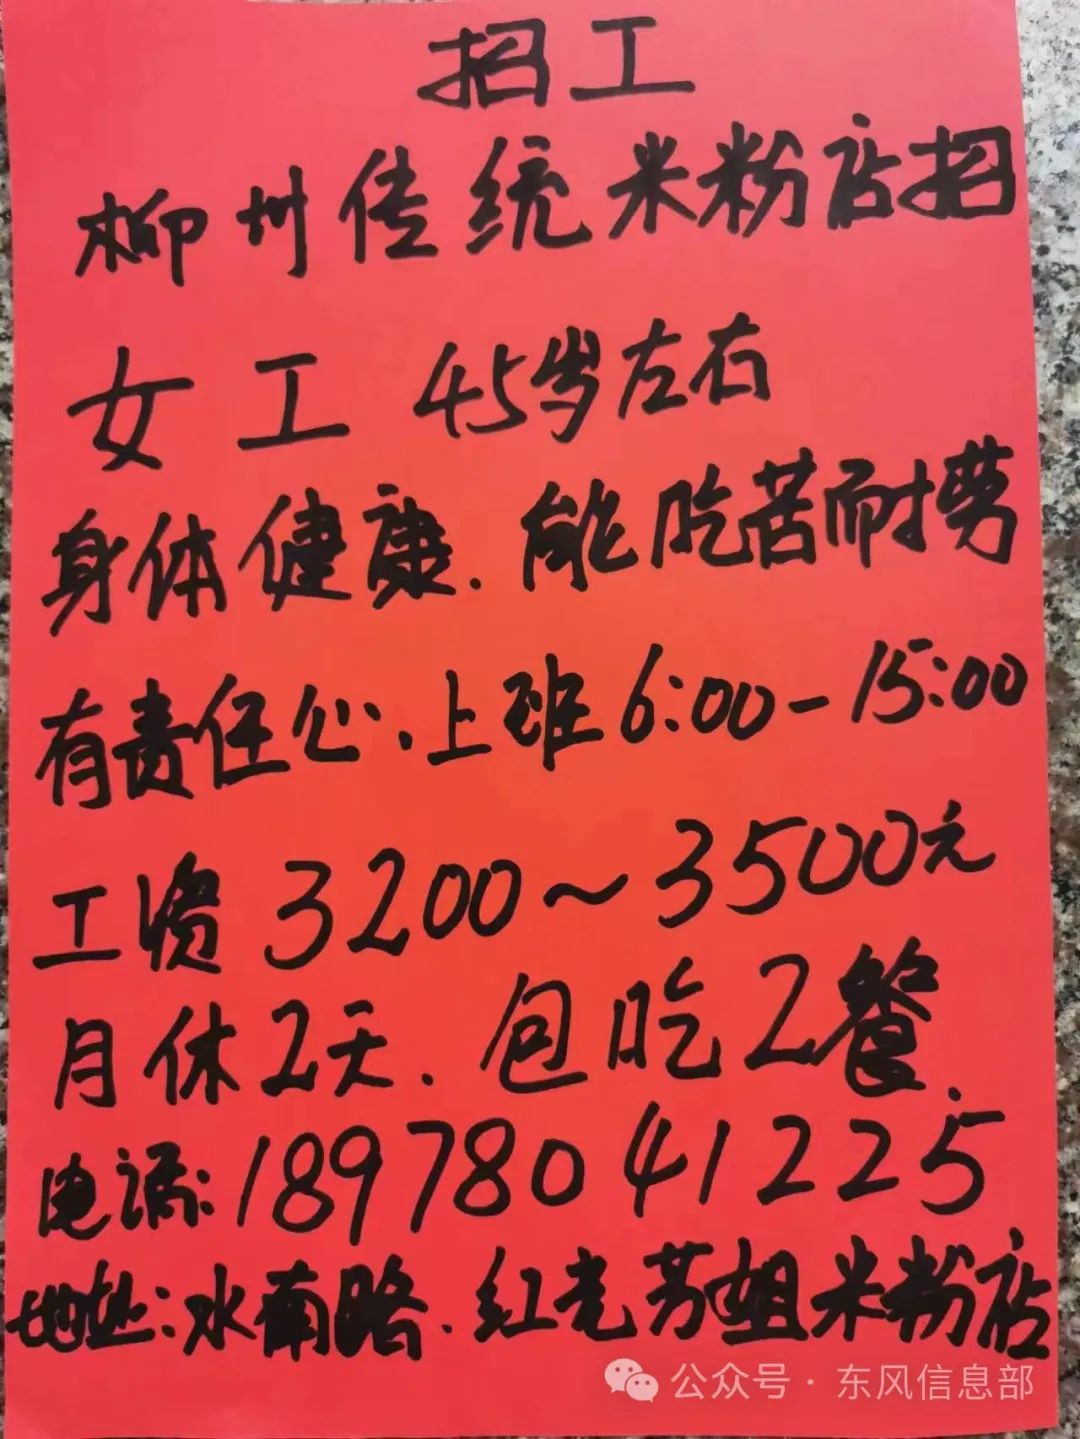 招工
柳州传统米粉店招
女工 45岁左右
身体健康.能吃苦耐劳
有责任心.上班6:00-15:00
工资3200~3500元
月休2天.包吃2餐.
电话:18978041225
地址:水南路.红光芳姐米粉店
公众号·东风信息部